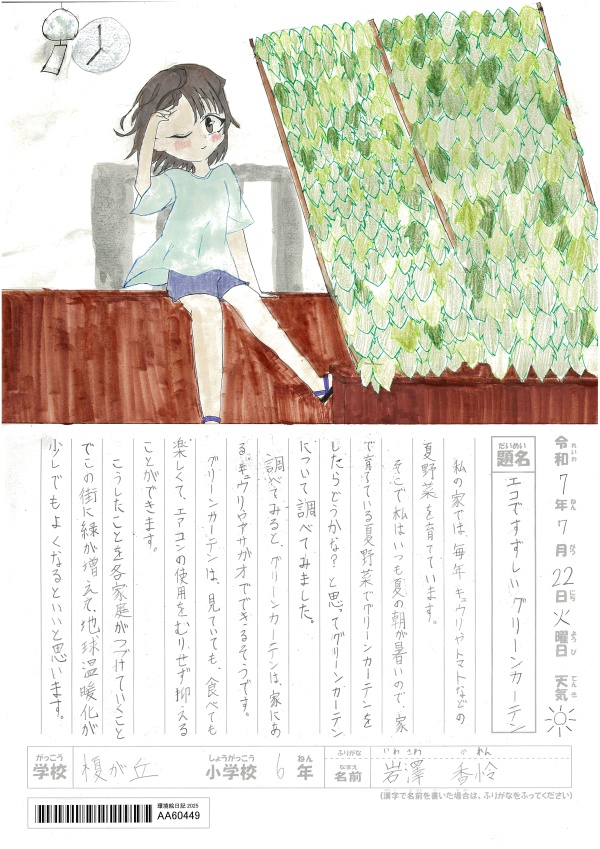 令和7年7月22日火曜日 天気
れいわ ねん がつ にち ようび てんき
だいめい
題名 エコですずしいグリーンカーテン
私の家では、毎年キュウリやトマトなどの
夏野菜を育てています。
そこで私はいつも夏の朝が暑いので、家
で育てている夏野菜でグリーンカーテンを
したらどうかな?と思ってグリーンカーテン
について調べてみました。
調べてみると、グリーンカーテンは、家にあ
る、キュウリやアサガオでできるそうです。
グリーンカーテンは、見ていても、食べても
楽しくて、エアコンの使用をむりせず抑える
ことができます。
こうしたことを各家庭がつづけていくこと
でこの街に緑が増えて、地球温暖化が
少しでもよくなるといいと思います。
がっこう しょうがっこう ねん
学校 榎が丘 小学校 6年
ふりがな いわさわ かれん
なまえ
名前 岩澤 香怜
(漢字で名前を書いた場合は、ふりがなをふってください)
環境絵日記 2025
AA60449